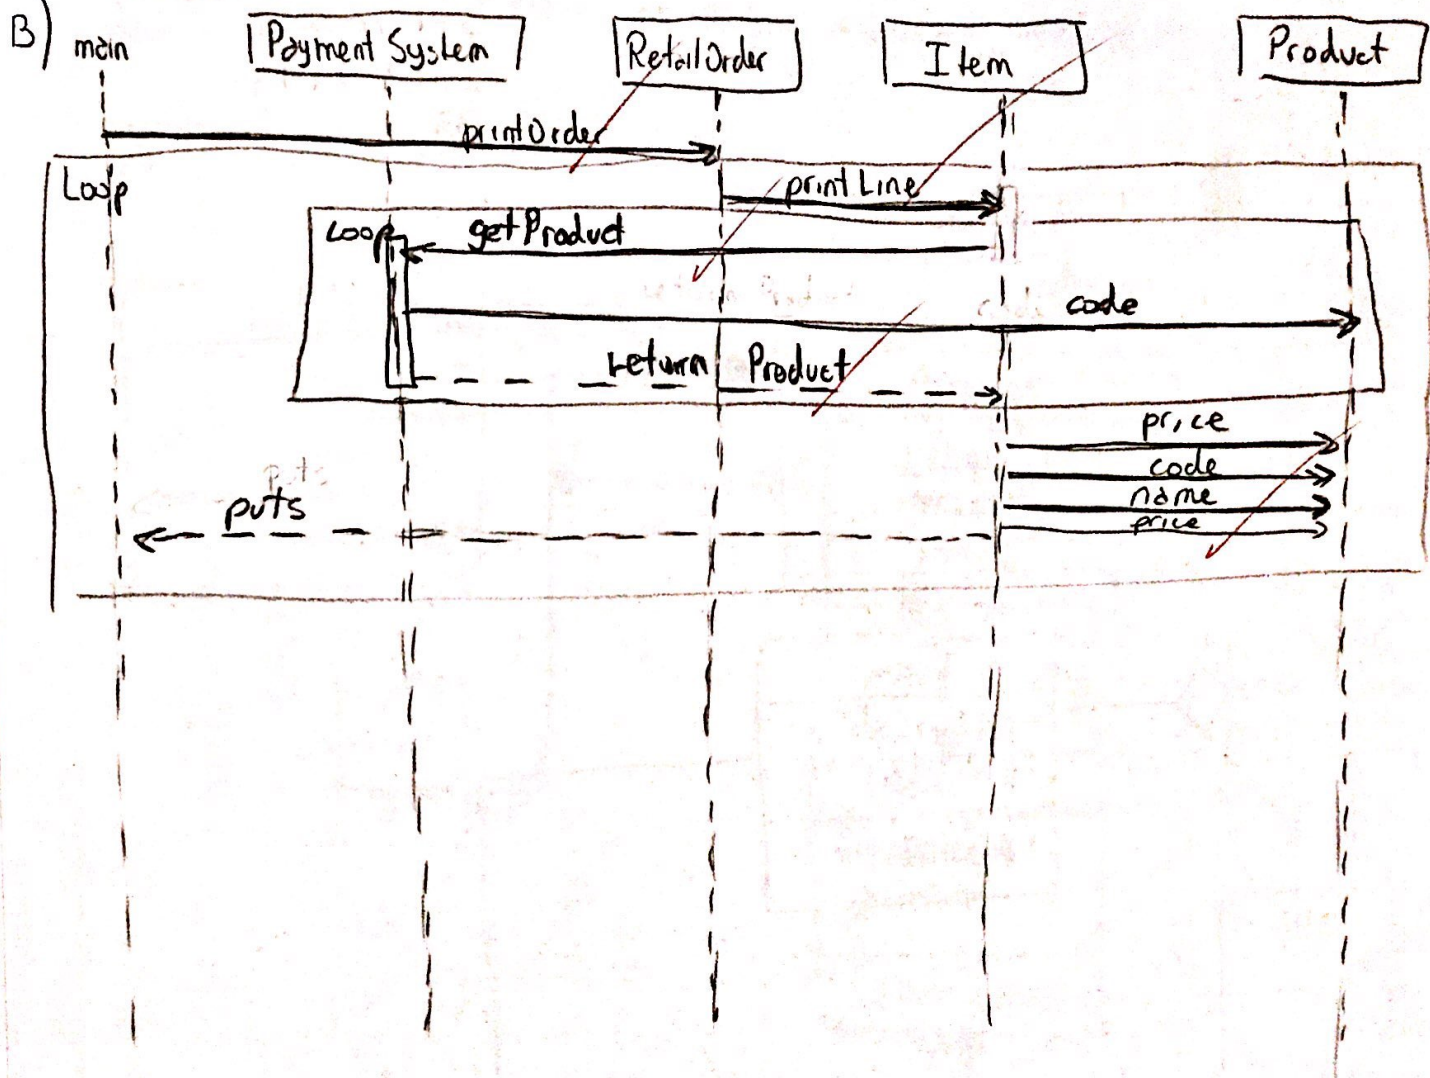 B)
main
Payment System
RetailOrder
Item
Product
printOrder
Loop
printLine
Loop
getProduct
code
return Product
price
code
name
price
puts